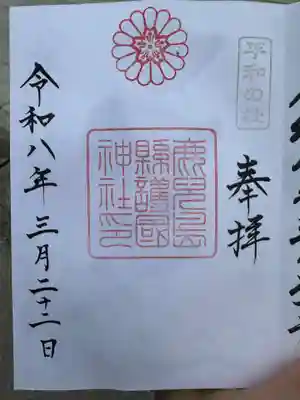 平和の社
奉拝
鹿兒島
縣護國
神社印
令和八年三月二十二日